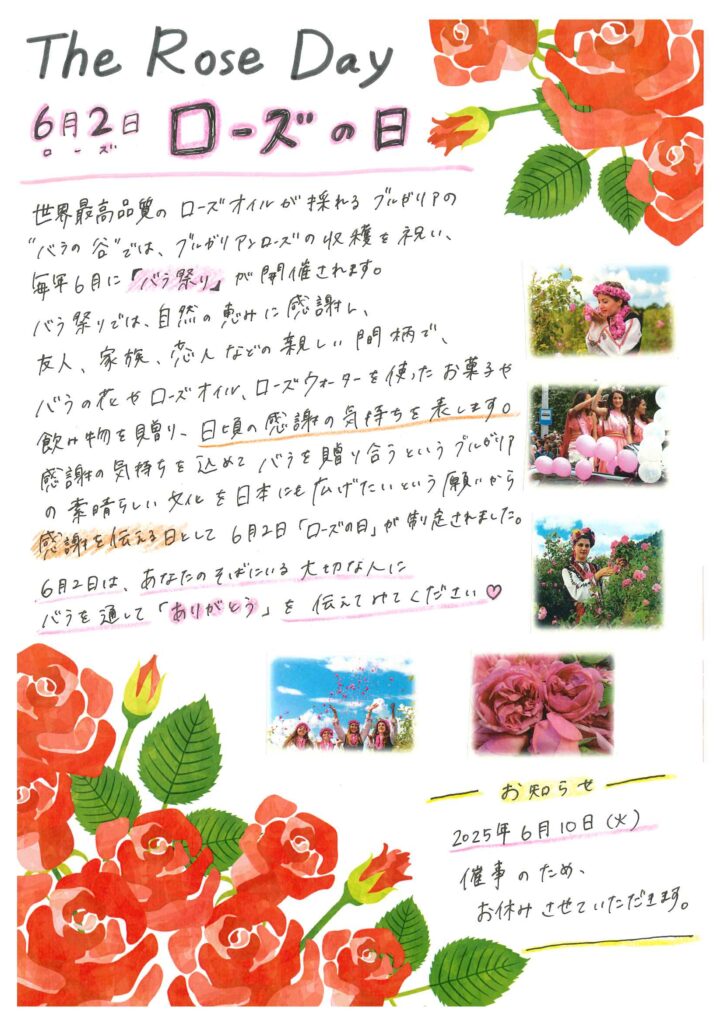 The Rose Day
6月2日 ローズの日
ロー ズ
世界最高品質の ローズオイルが 採れる ブルガリアの
"バラの谷"では、ブルガリアンローズの収穫を祝い、
毎年6月に「バラ祭り」が開催されます。
バラ祭りでは、自然の恵みに感謝し、
友人、家族、恋人などの親しい間柄で、
バラの花やローズオイル、ローズウォーターを使ったお菓子や
飲み物を贈り、日頃の感謝の気持ちを表します。
感謝の気持ちを込めて バラを贈り合うという ブルガリア
の素晴らしい文化を日本にも広げたいという願いから
感謝を伝える日として 6月2日「ローズの日」が制定されました。
6月2日は、あなたのそばにいる大切な人に
バラを通して「ありがとう」を伝えてみてください♡
お知らせ
2025年6月10日(火)
催事のため、
お休みさせていただきます。